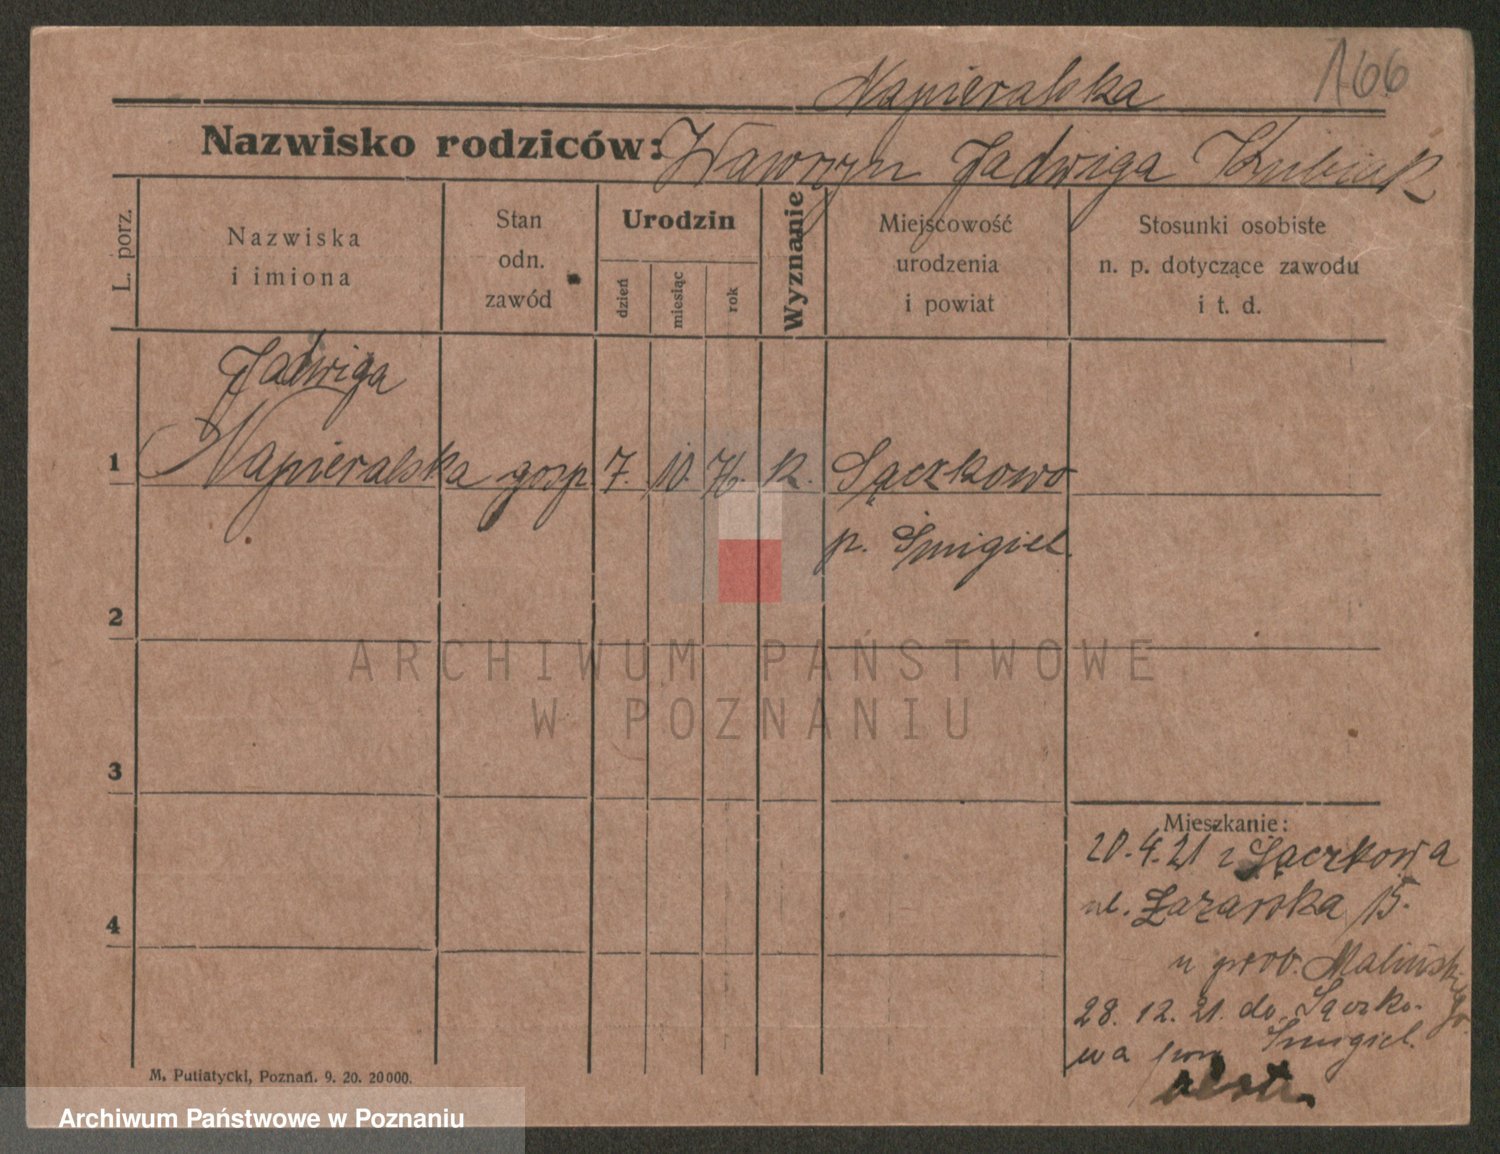 166
Napieralska
Nazwisko rodziców: Wawrzyn Jadwiga Kubiak
L. porz.
Nazwiska
i imiona
Stan
odn.
zawód
Urodzin
dzień
miesiąc
rok
Wyznanie
Miejscowość
urodzenia
i powiat
Stosunki osobiste
n. p. dotyczące zawodu
i t. d.
Jadwiga
1 Napieralska gosp. 7. 10. 76. K. Sączkowo
p. Śmigiel.
2
3
4
Mieszkanie:
20.4.21 z Sączkowa
ul. Łazarska 15.
u prob. Malińskiego
28. 12. 21. do Sączko-
wa pow Śmigiel.
M. Putiatycki, Poznań. 9. 20. 20000.
ARCHIWUM PAŃSTWOWE
W POZNANIU
Archiwum Państwowe w Poznaniu